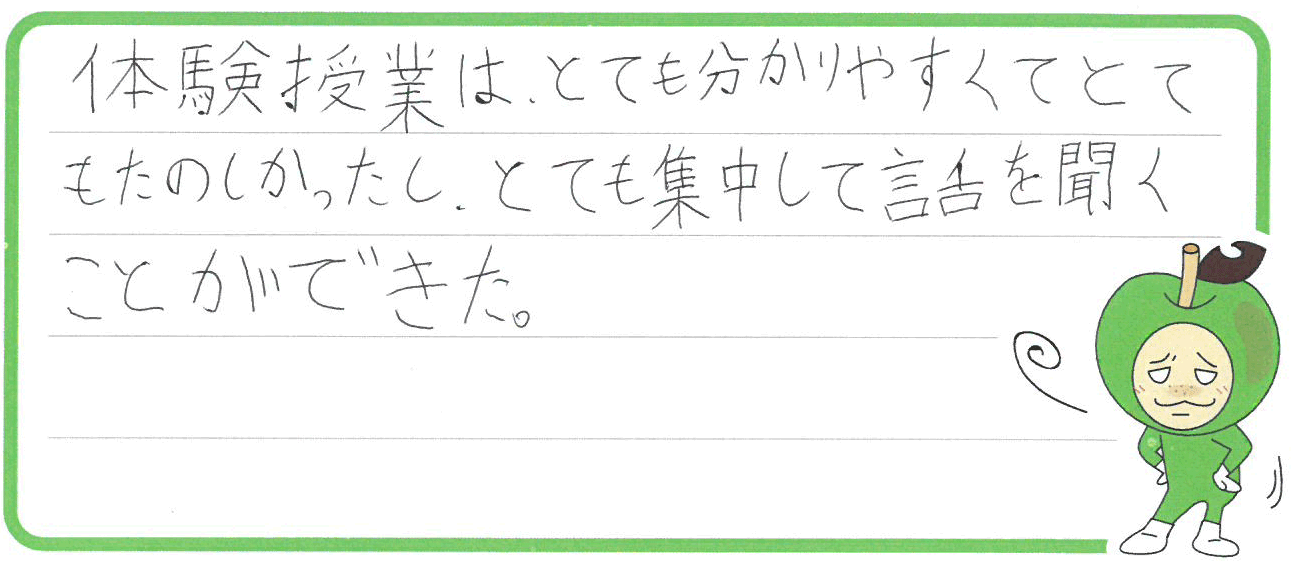 体験授業は、とても分かりやすくてとて
もたのしかったし、とても集中して話を聞く
ことができた。